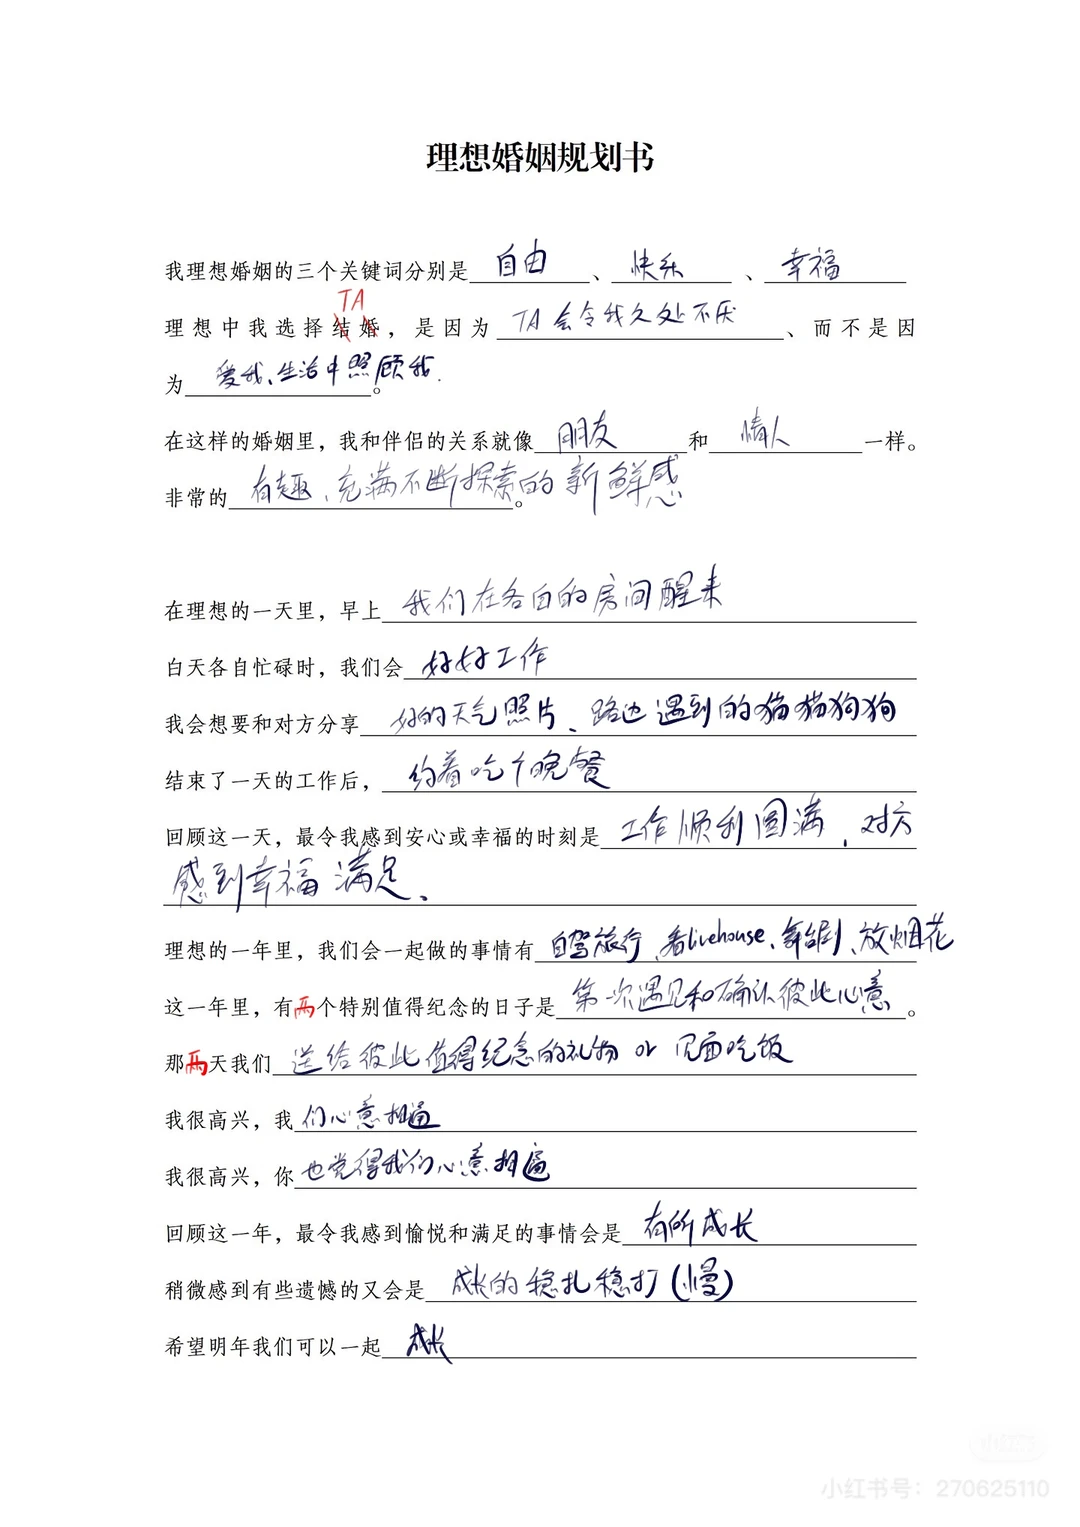 理想婚姻规划书
我理想婚姻的三个关键词分别是 自由 、 快乐 、 幸福
TA
理想中我选择结婚，是因为 TA会令我久处不厌 、而不是因
为 爱我、生活中照顾我. 。
在这样的婚姻里，我和伴侣的关系就像 朋友 和 情人 一样。
非常的 有趣、充满不断探索的新鲜感 。
在理想的一天里，早上 我们在各自的房间醒来
白天各自忙碌时，我们会 好好工作
我会想要和对方分享 好的天气照片、路边遇到的猫猫狗狗
结束了一天的工作后， 约着吃个晚餐
回顾这一天，最令我感到安心或幸福的时刻是 工作顺利圆满、对方
感到幸福满足、
理想的一年里，我们会一起做的事情有 自驾旅行、看livehouse、舞台剧、放烟花
这一年里，有两个特别值得纪念的日子是 第一次遇见和确认彼此心意 。
那两天我们 送给彼此值得纪念的礼物 or 见面吃饭
我很高兴，我 们心意相通
我很高兴，你 也觉得我们心意相通
回顾这一年，最令我感到愉悦和满足的事情会是 有所成长
稍微感到有些遗憾的又会是 成长的稳扎稳打(慢)
希望明年我们可以一起 成长
小红书
小红书号：270625110